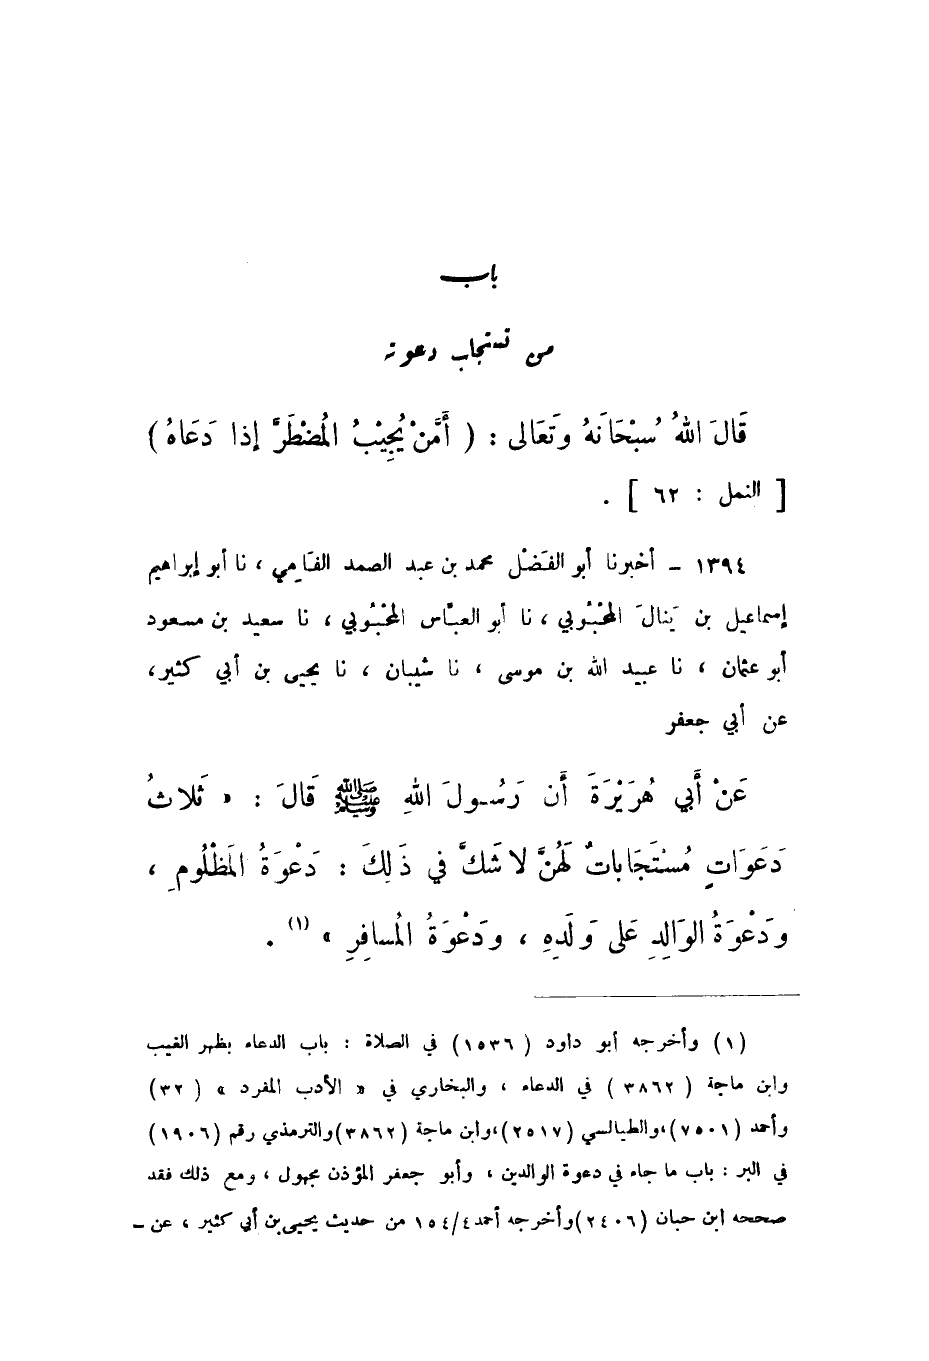 باب
من تستجاب دعوته
قَالَ اللهُ سُبْحَانَهُ وتَعَالى : ( أَمَّنْ يُجِيْبُ المُضْطَرَّ إذا دَعَاهُ )
[ النمل : ٦٢ ] .
١٣٩٤ – أخبرنا أبو الفَضْل محمد بن عبد الصمد الفَامِي ، نا أبو إبراهيم
إسماعيل بن يَنالَ المَحْبُوبي ، نا أبو العبَّاس المَحْبُوبي ، نا سعيد بن مسعود
أبو عثمان ، نا عبيد الله بن موسى ، نا شيبان ، نا يحيى بن أبي كثير،
عن أبي جعفر
عَنْ أَبي هُرَيْرَةَ أَن رَسُولَ اللهِ ﷺ قَالَ : « ثَلاثُ
دَعَوَاتٍ مُسْتَجَاباتٌ لَهُنَّ لا شَكَّ في ذَلِكَ : دَعْوَةُ المَظْلُومِ ،
ودَعْوَةُ الوَالِدِ عَلى وَلَدِهِ ، ودَعْوَةُ المُسافِرِ » (١) .
(١) وأخرجه أبو داود ( ١٥٣٦ ) في الصلاة : باب الدعاء بظهر الغيب
وابن ماجة ( ٣٨٦٢ ) في الدعاء ، والبخاري في « الأدب المفرد » ( ٣٢ )
وأحمد (٧٥٠١)،والطيالسي (٢٥١٧)،وابن ماجة (٣٨٦٢)والترمذي رقم (١٩٠٦)
في البر : باب ما جاء في دعوة الوالدين ، وأبو جعفر المؤذن مجهول ، ومع ذلك فقد
صححه ابن حبان (٢٤٠٦)وأخرجه أحمد ١٥٤/٤ من حديث يحيى بن أبي كثير ، عن –